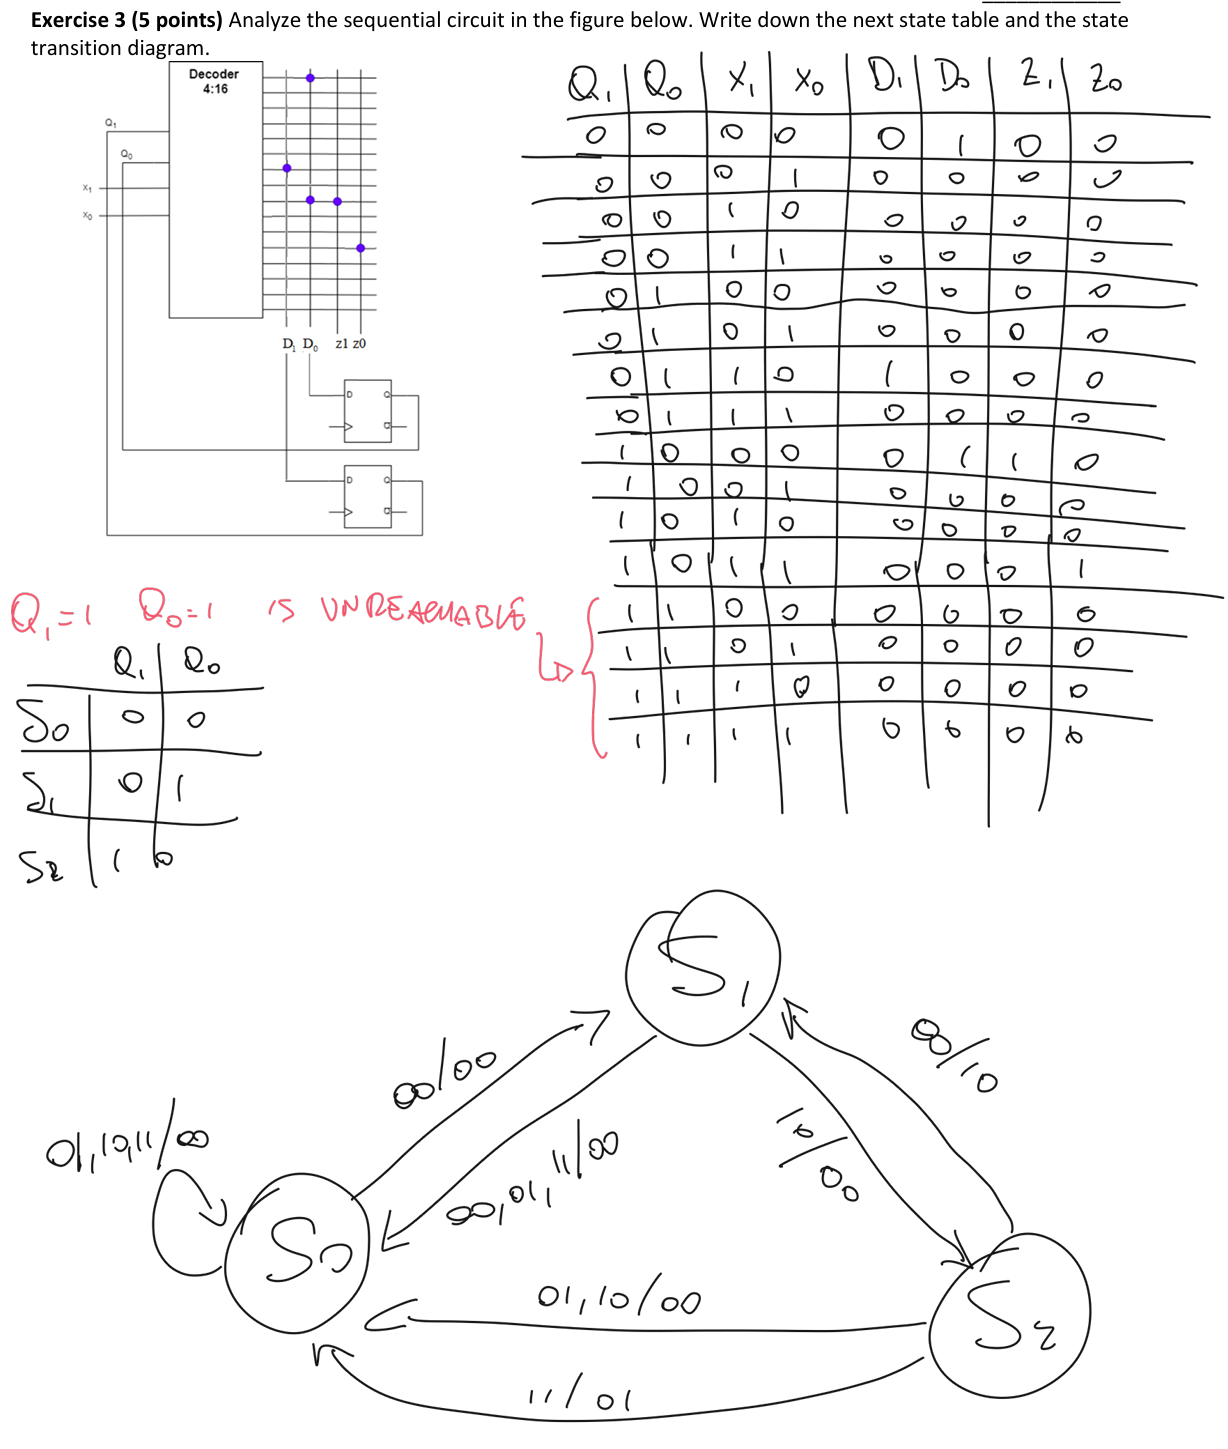 Exercise 3 (5 points) Analyze the sequential circuit in the figure below. Write down the next state table and the state
transition diagram.
Decoder
4:16
Q1
Q0
x1
x0
D1 D0 z1 z0
D Q
Q
D Q
Q
Q1 Q0 X1 X0 D1 D0 Z1 Z0
0 0 0 0 0 1 0 0
0 0 0 1 0 0 0 0
0 0 1 0 0 0 0 0
0 0 1 1 0 0 0 0
0 1 0 0 0 0 0 0
0 1 0 1 0 0 0 0
0 1 1 0 1 0 0 0
0 1 1 1 0 0 0 0
1 0 0 0 0 1 1 0
1 0 0 1 0 0 0 0
1 0 1 0 0 0 0 0
1 0 1 1 0 0 0 1
1 1 0 0 0 0 0 0
1 1 0 1 0 0 0 0
1 1 1 0 0 0 0 0
1 1 1 1 0 0 0 0
Q1=1 Q0=1 IS UNREACHABLE
Q1 Q0
S0 0 0
S1 0 1
S2 1 0
S1
00/00
00/10
01,10,11/00
10/00
00,01,11/00
S0
01,10/00
S2
11/01